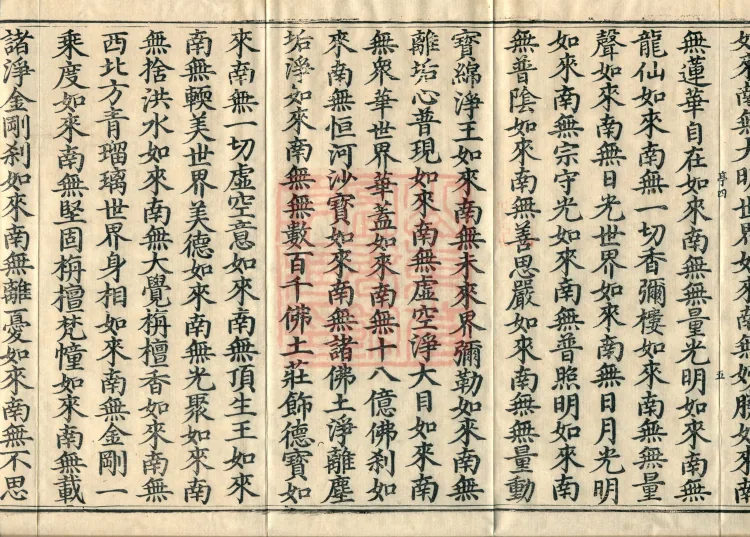 如來南無大明世界如來南無妙勝如來
無蓮華自在如來南無無量光明如來南無
龍仙如來南無一切香彌樓如來南無無量
聲如來南無日光世界如來南無日月光明
如來南無宗守光如來南無普照明如來南
無普陰如來南無善思嚴如來南無無量動
寶綿淨王如來南無未來界彌勒如來南無
離垢心普現如來南無虛空淨大目如來南
無眾華世界華蓋如來南無十八億佛刹如
來南無恒河沙寶如來南無諸佛土淨離塵
垢淨如來南無無數百千佛土莊飾德寶如
來南無一切虛空意如來南無頂生王如來
南無輭美世界美德如來南無光聚如來南
無捨洪水如來南無大覺栴檀香如來南無
西北方青瑠璃世界身相如來南無金剛一
乘度如來南無堅固栴檀梵幢如來南無載
諸淨金剛刹如來南無離憂如來南無不思